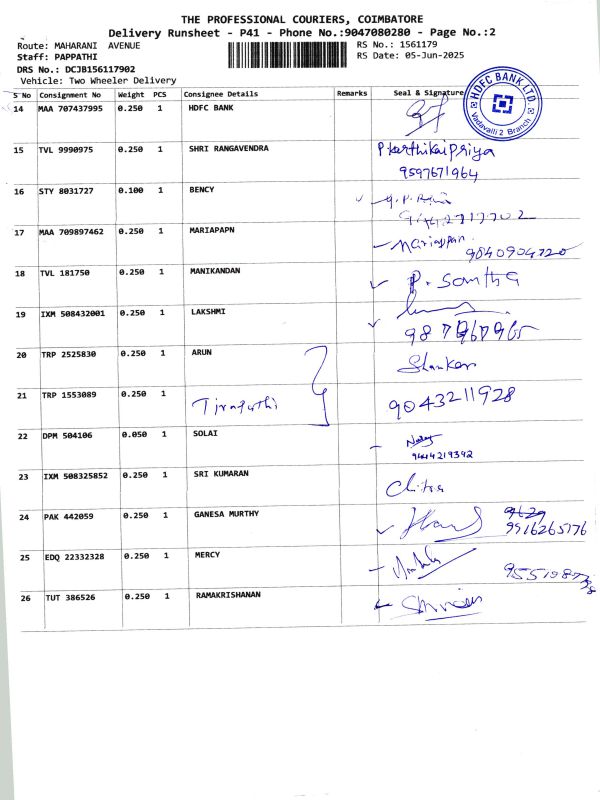 THE PROFESSIONAL COURIERS, COIMBATORE
Delivery Runsheet - P41 - Phone No.:9047080280 - Page No.:2
Route: MAHARANI AVENUE
RS No.: 1561179
Staff: PAPPATHI
RS Date: 05-Jun-2025
DRS No.: DCJB156117902
Vehicle: Two Wheeler Delivery
S No Consignment No Weight PCS Consignee Details Remarks Seal & Signature
HDFC BANK LTD.
Vadavalli 2 Branch
14 MAA 707437995 0.250 1 HDFC BANK
15 TVL 9990975 0.250 1 SHRI RANGAVENDRA P Karthikai Priya
9597671964
16 STY 8031727 0.100 1 BENCY
17 MAA 709897462 0.250 1 MARIAPAPN Mariappan
9840904720
18 TVL 181750 0.250 1 MANIKANDAN P. Santha
19 IXM 508432001 0.250 1 LAKSHMI
20 TRP 2525830 0.250 1 ARUN Shankar
21 TRP 1553089 0.250 1 Tirupathi 9043211928
22 DPM 504106 0.050 1 SOLAI
9444219342
23 IXM 508325852 0.250 1 SRI KUMARAN Chitra
24 PAK 442059 0.250 1 GANESA MURTHY
9916265176
25 EDQ 22332328 0.250 1 MERCY
26 TUT 386526 0.250 1 RAMAKRISHANAN